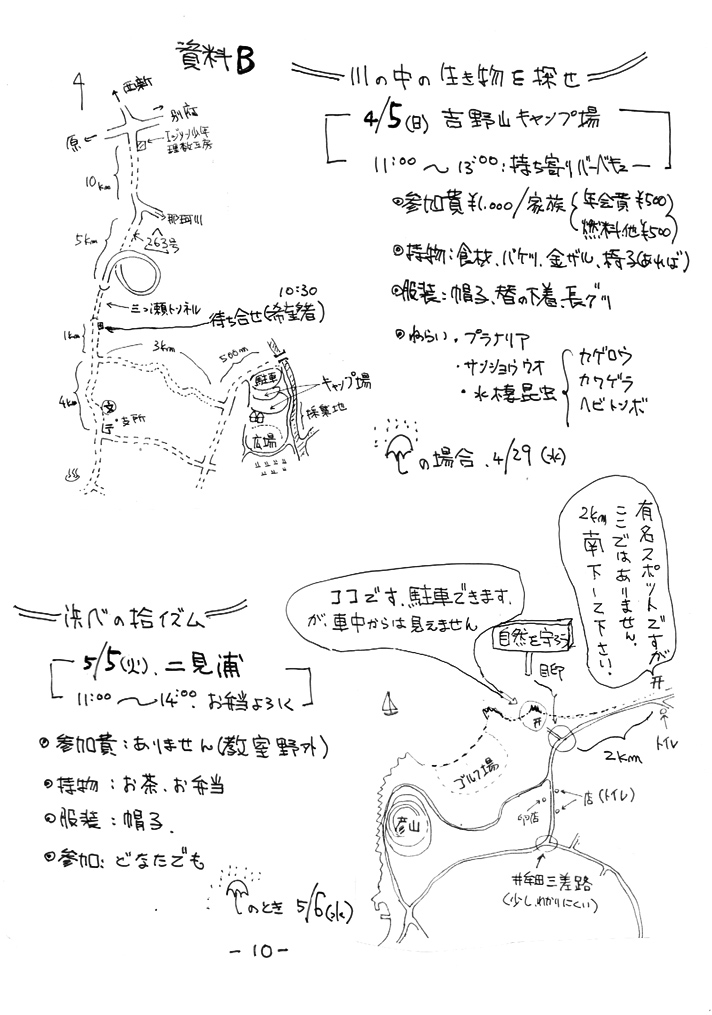 資料B
川の中の生き物を探せ
4/5(日) 吉野山キャンプ場
11:00 〜 13:00:持ち寄りバーベキュー
参加費¥1,000/家族 年会費¥500
燃料他¥500
持物:食材、バケツ、金ザル、椅子(あれば)
服装:帽子、替の下着、長グツ
ねらい・プラナリア
・サンショウウオ
・水棲昆虫
カゲロウ
カワゲラ
ヘビトンボ
の場合、4/29(水)
西新
別府
原
エジソン少年
理数工房
10km
那珂川
5km
263号
三つ瀬トンネル
10:30
待ち合せ(希望者)
1km
3km
500m
駐車
キャンプ場
採集地
4km
文
支所
広場
浜べの拾イズム
5/5(火)、二見浦
11:00 〜 14:00、お弁当よろしく
参加費:ありません(教室野外)
持物:お茶、お弁当
服装:帽子、
参加:どなたでも
のとき 5/6(水)
ココです、駐車できます、
が、車中からは見えません
有名スポットですが
ここではありません、
2km南下して下さい!
自然を守ろう
目印
トイレ
2km
ゴルフ場
店(トイレ)
彦山
井牟田三差路
(少し、わかりにくい)
-10-